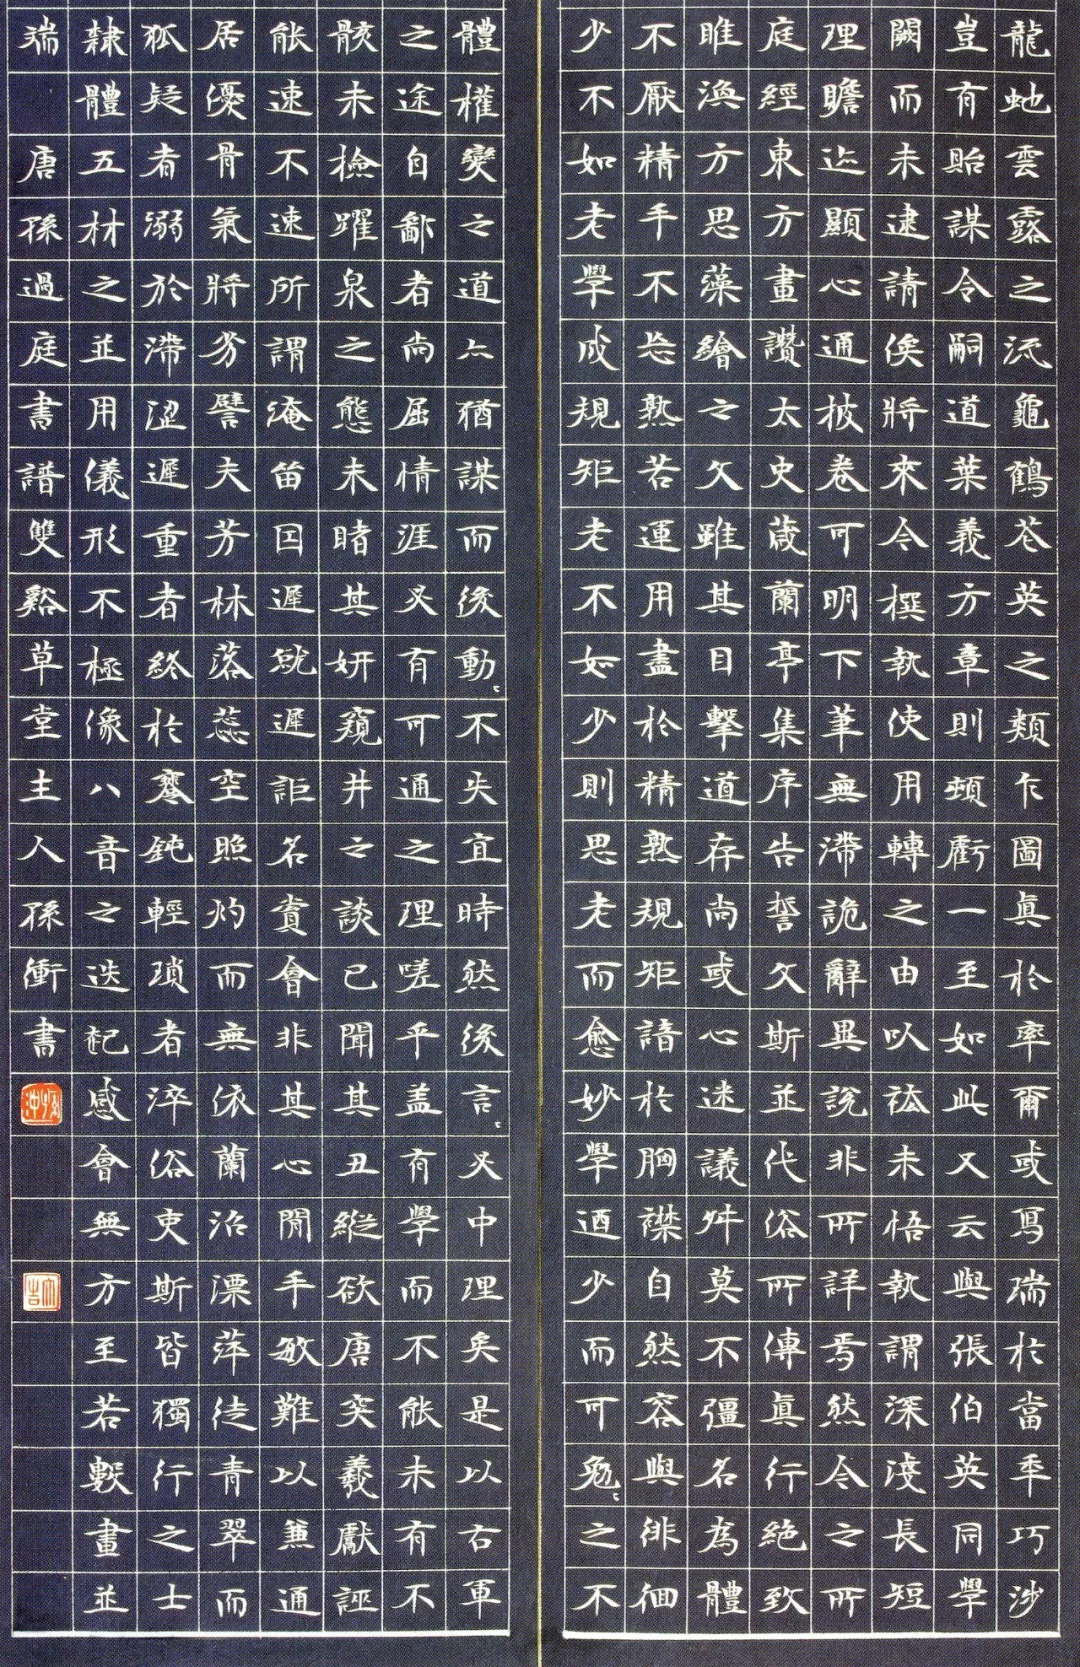 龍虵雲露之流龜鶴花英之類乍圖真於率爾或寫瑞於當年巧涉
豈有貽謀令嗣道葉義方章則頓虧一至如此又云與張伯英同學
闕而未逮請俟將來令撰執使用轉之由以祛未悟執謂深淺長短
理瞻迩顯心通披卷可明下筆無滯詭辭異說非所詳焉然今之所
庭經東方畫讚太史葴蘭亭集序告誓文斯並代俗所傳真行絕致
睢渙方思藻繪之文雖其目擊道存尚或心迷議舛莫不彊名為體
不厭精手不忘熟若運用盡於精熟規矩諳於胸襟自然容與徘徊
少不如老學成規矩老不如少則思老而愈妙學迺少而可勉〻之不
體權變之道亦猶謀而後動〻不失宜時然後言〻必中理矣是以右軍
之途自鄙者尚屈情涯必有可通之理嗟乎盖有學而不能未有不
骸未檢躍泉之態未睹其妍窺井之談已聞其丑縱欲唐突羲獻誣
能速不速所謂淹留因遲就遲詎名賞會非其心閒手敏難以兼通
居優骨氣將劣譬夫芳林落蕊空照灼而無依蘭沼漂萍徒青翠而
狐疑者溺於滯澀遲重者終於蹇鈍輕瑣者淬俗吏斯皆獨行之士
隸體五材之並用儀形不極像八音之迭起感會無方至若數畫並
瑞 唐孫過庭書譜雙谿草堂主人孫衝書